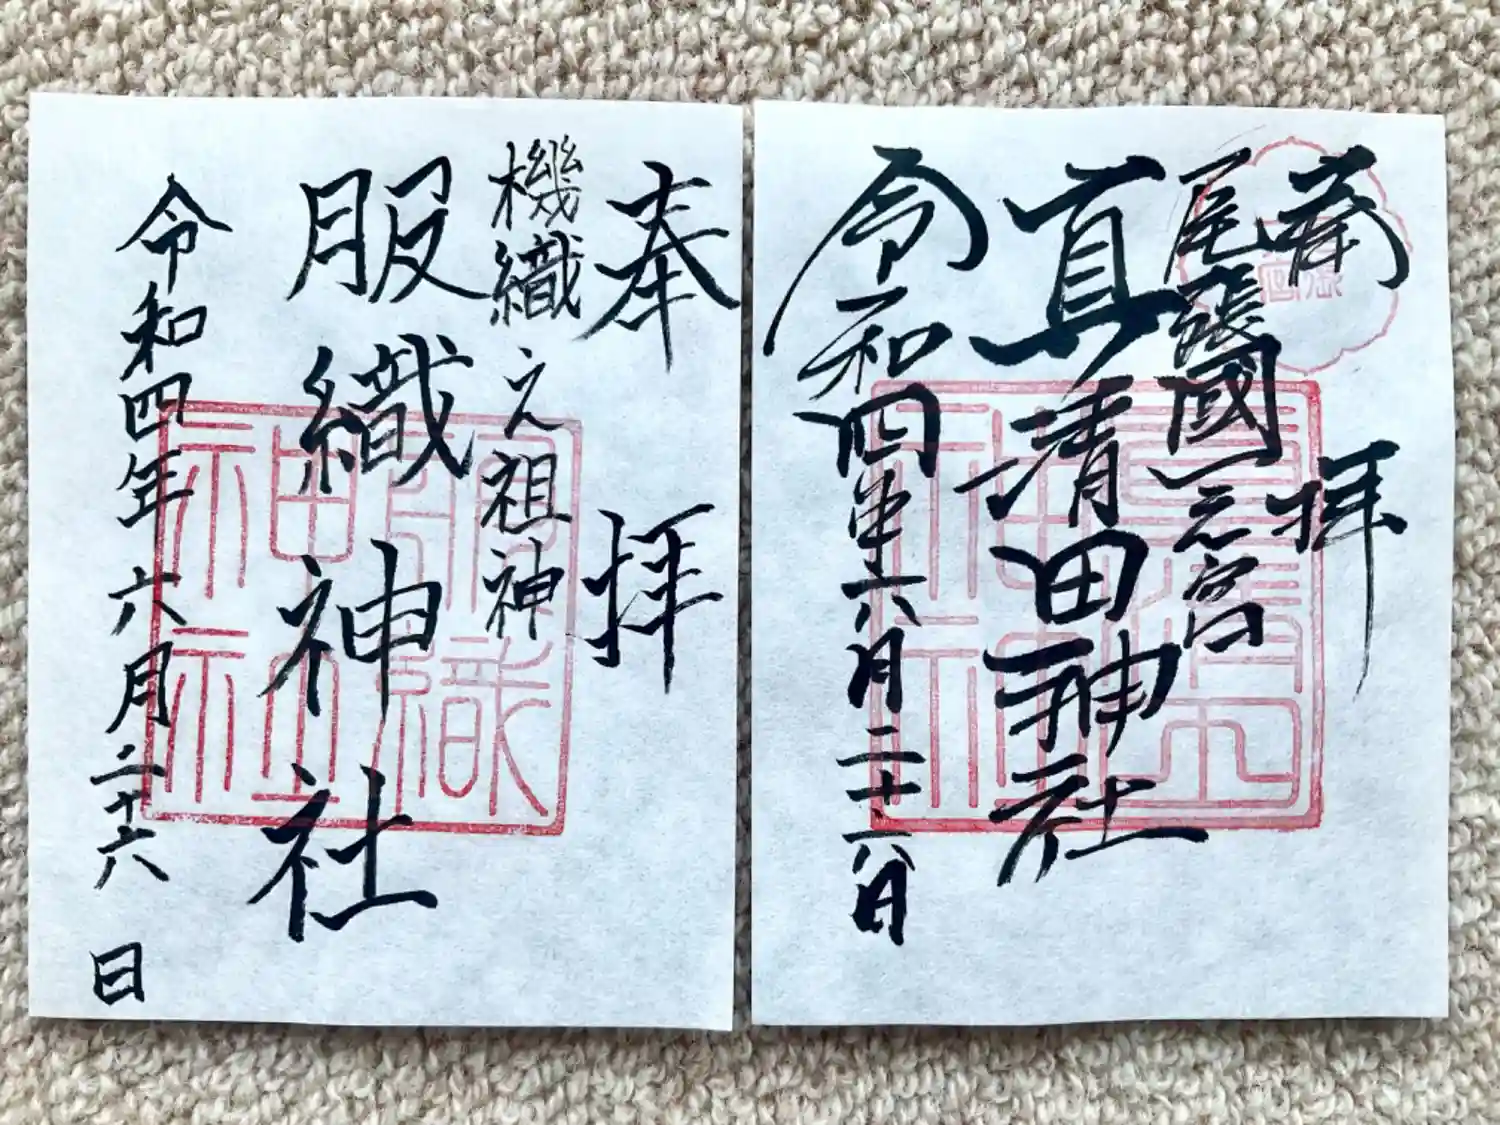 奉拝
尾張國一之宮
真清田神社
令和四年六月二十六日
奉拝
機織之祖神
服織神社
令和四年六月二十六日
真清田神社
服織神社